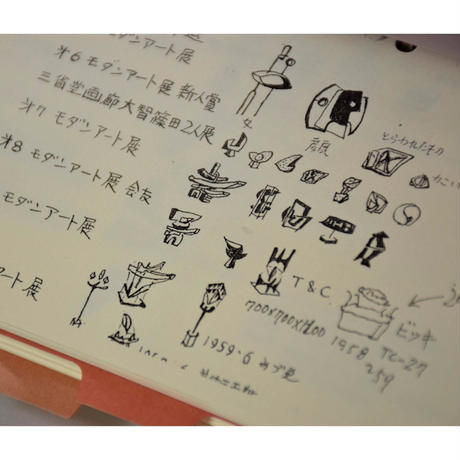 モダンアート展
第6モダンアート展 新人賞
三省堂画廊 大智篠田2人展
第7 モダンアート展
第8 モダンアート展 会友
モダンアート展
アート展
女
顔
とらわれたもの
T & C.
700×700×1400
1958
ビッキ
TC-27
259
1959・6